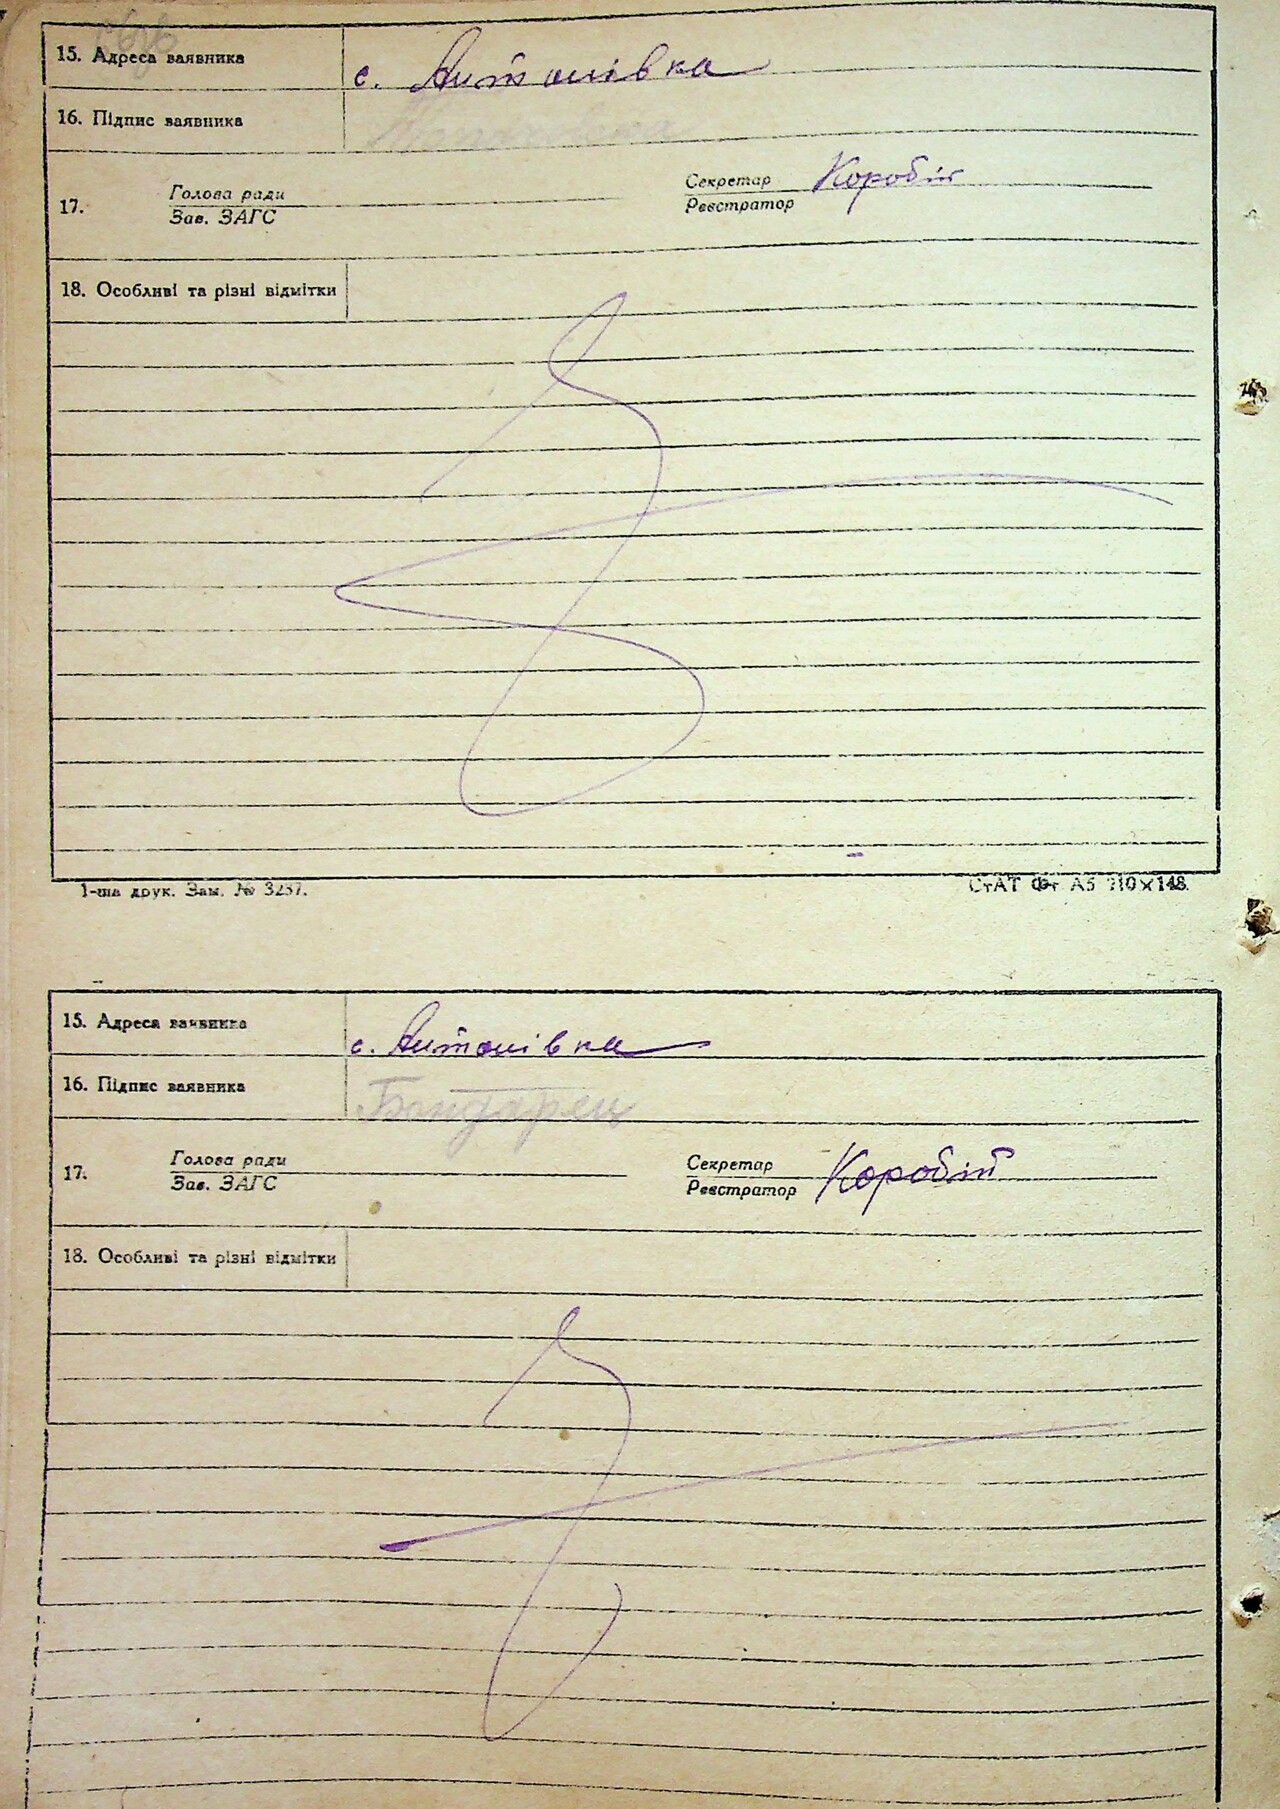 15. Адреса заявника с. Антонівка
16. Підпис заявника
17. Голова ради Секретар Коробій
Зав. ЗАГС Реєстратор
18. Особливі та різні відмітки
1-ша друк. Зам. № 3237. СтАТ Фт А5 210×148.
15. Адреса заявника с. Антонівка
16. Підпис заявника Бондарец
17. Голова ради Секретар Коробій
Зав. ЗАГС Реєстратор
18. Особливі та різні відмітки